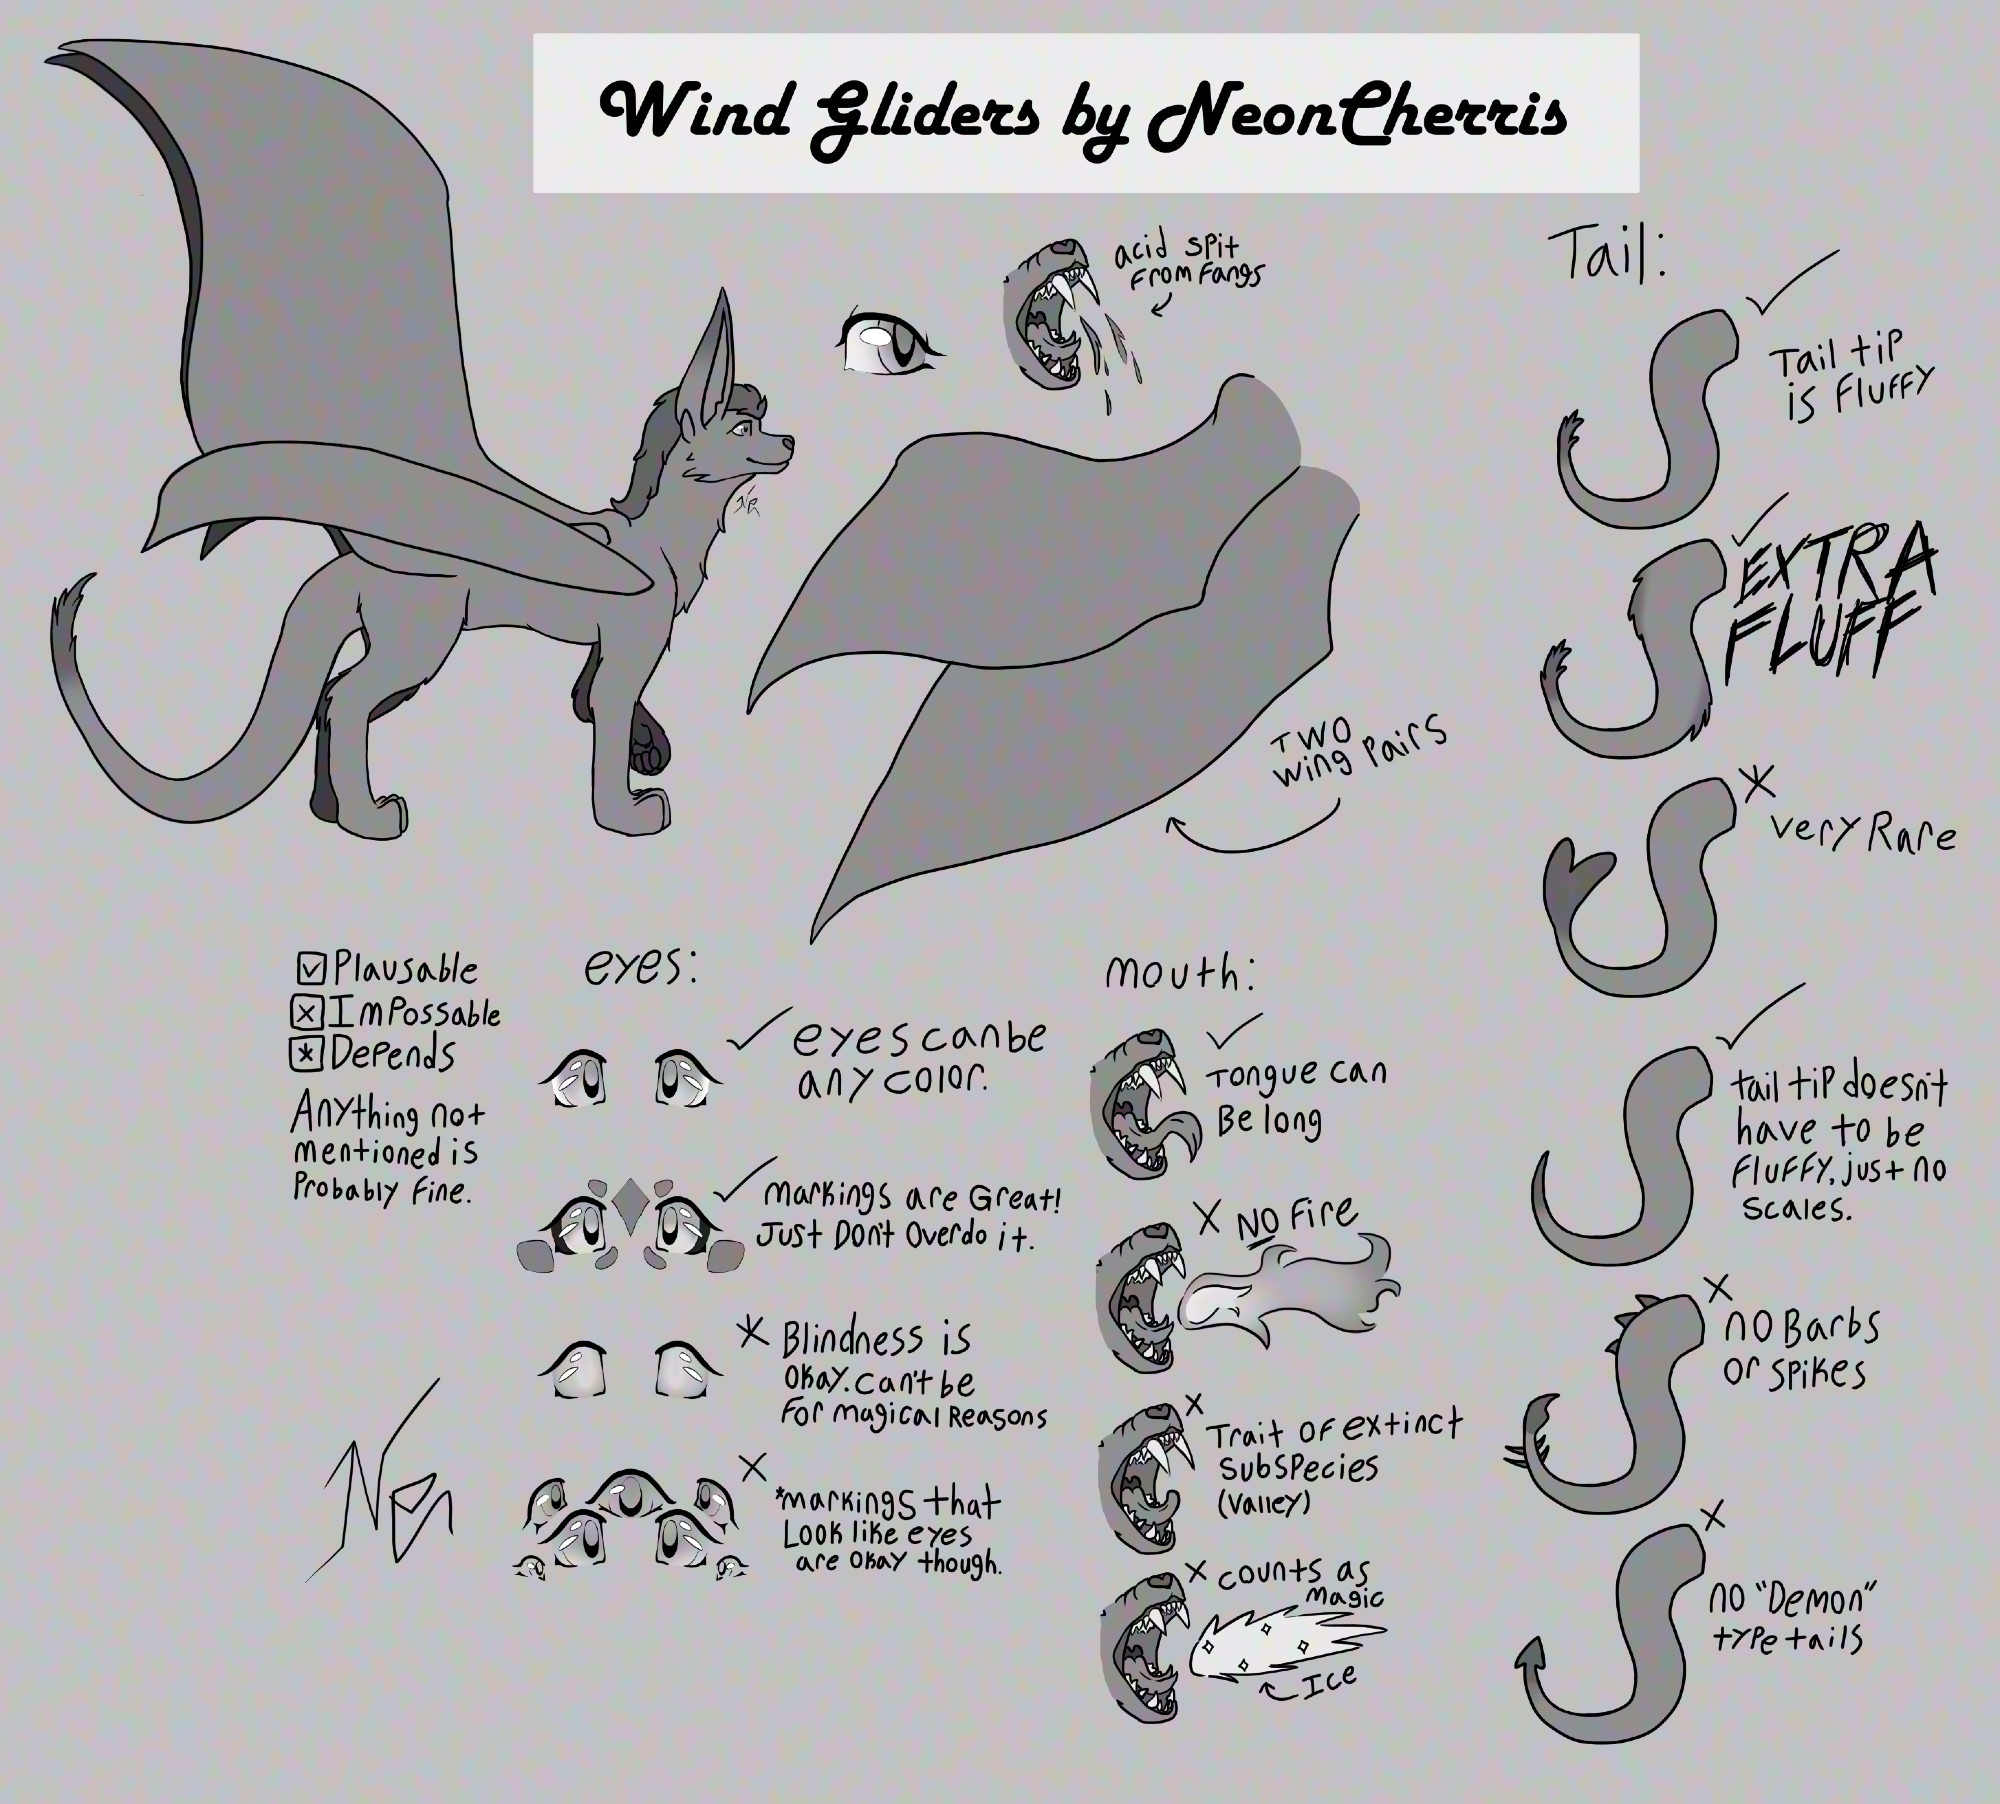 Wind Gliders by NeonCherris
acid spit
From Fangs
Tail:
Tail tip
is Fluffy
EXTRA
FLUFF
Very Rare
tail tip doesn't
have to be
Fluffy, just no
scales.
no Barbs
or spikes
no "Demon"
type tails
Two
wing pairs
Plausable
Impossable
Depends
Anything not
mentioned is
Probably Fine.
eyes:
eyes can be
any color.
markings are Great!
Just Don't Overdo it.
Blindness is
okay. can't be
For magical Reasons
*markings that
Look like eyes
are okay though.
mouth:
Tongue can
Be long
No Fire
Trait of extinct
subspecies
(Valley)
counts as
magic
Ice